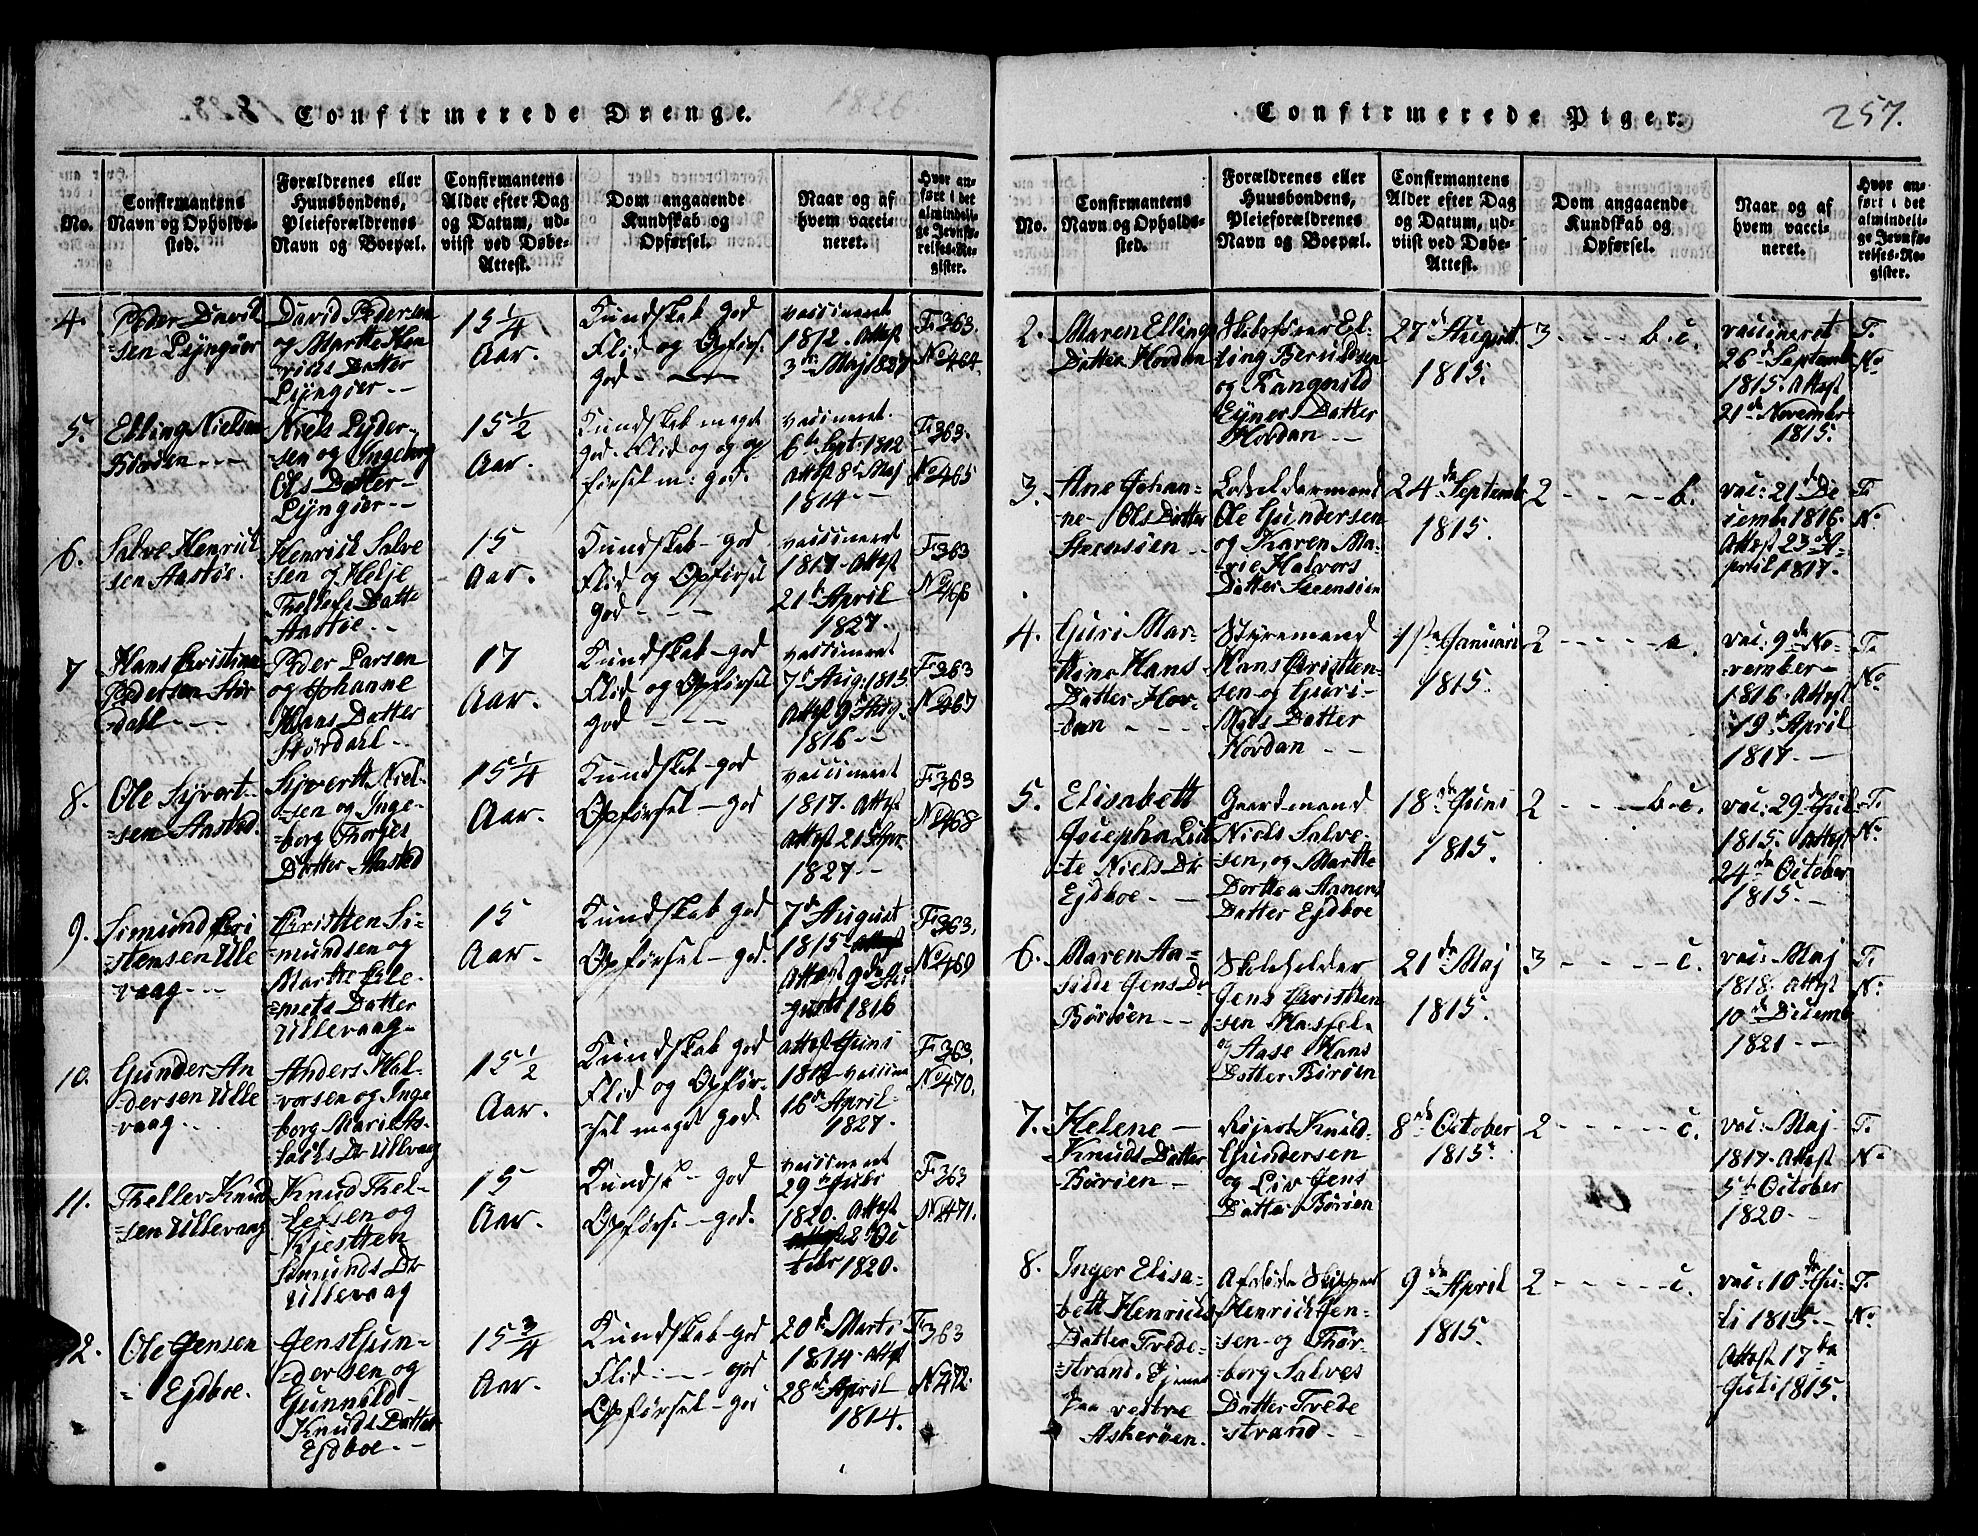 Confirmerede Drenge.
No.
Confirmantens
Navn og Opholds-
sted.
Forældrenes eller
Huusbondens,
Pleieforældrenes
Navn og Boepæl.
Confirmantens
Alder efter Dag
og Datum, ud-
viist ved Døbe-
Attest.
Dom angaaende
Kundskab og
Opførsel.
Naar og af
hvem vacci-
neret.
Hvor an-
ført i det
almindeli-
ge Jevnfø-
relses-Re-
gister.
4.
Peder David
-sen Lyngøer
David Pedersen
og Marthe Hen
richs Datter
Lyngøer --
15 1/4
Aar.
Kundskab god
Flid og Opførs.
god -
vaccineret
1812. Attest
3die Maj 1827
F. 363.
No 464.
5.
Elling Nielsen
Niels Peder-
-sen og Ingeborg
Ols Datter -
Lyngøer --
15 1/2
Aar.
Kundskab meget
god. Flid og og op
førsel m: god.
vaccineret.
6te Sept: 1802
Attest 8de Maj
1814 --
F. 363.
No 465
6.
Salve Henrich
sen Aastøe.
Henrich Salve
sen og Helje
Thellefs Datte
Aastøe --
15
Aar.
Kundskab - god
Flid og Opførsel
god - - -
vaccineret
1817. Attest
21de April
1827.
F. 363
No 466
7
Hans Christian
Pedersen Stør
dahl - -
Peder Larsen
og Johanne
Hans Datter
Størdahl --
17
Aar.
Kundskab - god
Flid og Opførsel
god - - -
vaccineret
7de Aug: 1815
Attest 9de Aug.
1816 --
F. 363
No 467
8.
Ole Syvert-
-sen Aasted.
Syvertt Niel-
-sen og Inge-
-borg Torjes
Datter Aasted
15 1/4
Aar.
Kundskab - god
Opførsel - god
vaccineret
1817. Attest
Attest 21 Apr.
1827 --
F. 363
No 468
9.
Simund Chri
-stensen Ulle
vaag - -
Christen Si-
-mundsen og
Marthe Cle-
-mets Datter
Ullevaag -
15
Aar.
Kundskab god
Opførsel - god.
7de August
1815.
Attest 9de Au-
gustt 1816
F. 363.
No 469
10.
Gunder An
-dersen Ulle
vaag - -
Anders Hal-
vorsen og Inge
-borg Marie As-
lachs Dr Ullevaag
15 1/2
Aar.
Kundskab god
Flid og Opfør-
-sel meget god
Attest Juni
16de April
1827.
F. 363.
No 470.
11.
Thellef Knud
-sen Ullevaag
Knud Thel-
-lefsen og
Kjesthen
Simunds Dr
Ullevaag
15
Aar.
Kundsk: - god
Opførse - god.
vaccineret
29de Julii
1820. Attest
1820.
F. 363
No 471.
12.
Ole Jensen
- Ejdboe.
Jens Gun-
-dersen og
Gunnild-
Knuds Datter
Ejdboe. -
15 3/4
Aar.
Kundskab - god
Flid - - - god
Opførsel - god
20de Marts
1814. Attest
28de April
1814.
F. 363
No 472.
Confirmerede Piger.
257.
No.
Confirmantens
Navn og Opholds-
sted.
Forældrenes eller
Huusbondens,
Pleieforældrenes
Navn og Boepæl.
Confirmantens
Alder efter Dag
og Datum, ud-
viist ved Døbe-
Attest.
Dom angaaende
Kundskab og
Opførsel.
Naar og af
hvem vacci-
neret.
Hvor an-
ført i det
almindeli-
ge Jevnfø-
relses-Re-
gister.
2.
Maren Ellings
Datter Hovdan
El-
ling Berulfsen
og Rangnild
Ejners Datter
Hovdan --
27de August
1815.
3 - - - b. c.
vaccineret
26de Septembr
1815. Attest
21de November
1815.
F.
No
3.
Ane Johan-
-ne Ols Datter
Steensøen -
Lodsoldermand
Ole Gundersen
og Karen Ma-
rie Halvors
Datter Steensøen
24de Septemb
1815.
2 - - - - b.
vac: 21de De
cemb 1816.
Attest 23de A-
pril 1817.
F.
No
4.
Guri Mar-
thine Hans
Datter Hov-
dan - - -
Styrmand
Hans Christen-
sen og Guri-
Mads Datter
Hovdan - -
1ste Januari
1815.
2 - - - - a.
vac: 9de No-
vember -
1816. Attest
19de April
1817. --
F.
No
5.
Elisabett
Josepha Lut-
te Niels Dr
Ejdboe. -
Gaardmand
Niels Salve-
-sen, og Marthe
Dorthea Aanens
Datter Ejdboe
18de Juni
1815.
2 - - - b. c.
vac: 29de Jul
1815. Attest
24de October
1815. -
F.
No
6.
Maren Aa-
sille Jens Dr
Børøen - -
Skoleholder
Jens Christen-
sen Hassel-
og Aase Hans
Datter Børøen
21de Maj
1815.
3 - - - - c.
vac: Maj
1818. Attest
10de Decemb
1821 --
F.
No
7.
Helene -
Knuds Datter
Børøen -
Rejert Knud
Gundersen
og Liv Jens
Datter Børøen
8de October
1815.
2 - - - - - c.
vac: Maj
1817. Attest
5te October
1820. -
F.
No
8.
Inger Elisa-
bett Henrichs
Datter Tvede-
-strand.
paa vestre
Askerøen.
Afdøde Skipper
Henrich Jen-
sen og Thor-
borg Salves
Datter Tvede
-strand -
9de April
1815.
2 - - - - c.
vac: 10de Ju-
li 1815 -
Attest 17de
Juli 1815.
F.
No